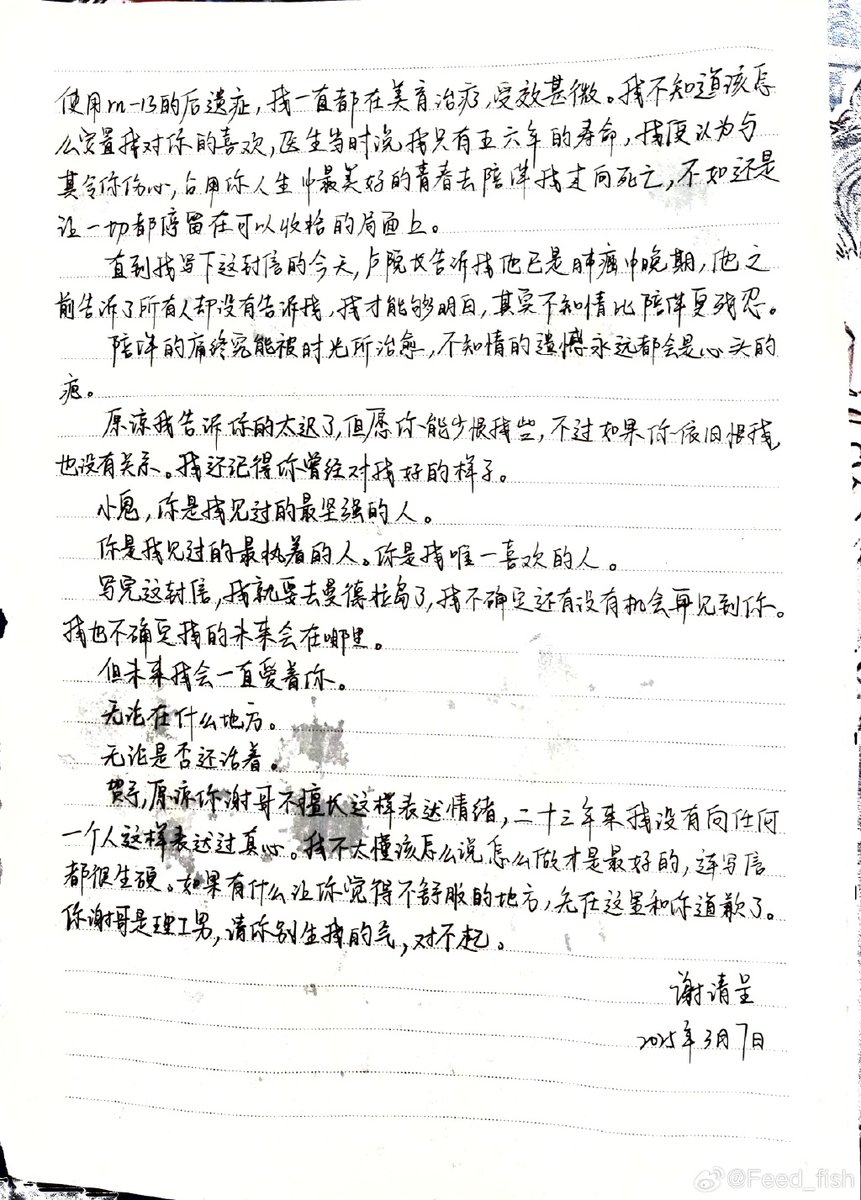 使用rn-13的后遗症，我一直都在美育治疗，受效甚微。我不知道该怎
么安置我对你的喜欢，医生当时说我只有五六年的寿命，我便认为与
其令你伤心，占用你人生中最美好的青春去陪伴我走向死亡，不如还是
让一切都停留在可以收拾的局面上。
直到我写下这封信的今天，卢院长告诉我他已是肺癌中晚期，他之
前告诉了所有人却没有告诉我，我才能够明白，其实不知情比陪伴更残忍。
陪伴的痛终究能被时光所治愈，不知情的遗憾永远都会是心头的
疤。
原谅我告诉你的太迟了，但愿你能少恨我些，不过如果你依旧恨我，
也没有关系。我还记得你曾经对我好的样子。
小鬼，你是我见过的最坚强的人。
你是我见过的最执着的人。你是我唯一喜欢的人。
写完这封信，我就要去曼德拉岛了，我不确定还有没有机会再见到你。
我也不确定我的未来会在哪里。
但未来我会一直爱着你。
无论在什么地方。
无论是否还活着。
贺予，原谅你谢哥不擅长这样表达情绪，二十三年来我没有向任何
一个人这样表达过真心。我不太懂该怎么说怎么做才是最好的，连写信
都很生硬。如果有什么让你觉得不舒服的地方，先在这里和你道歉了。
你谢哥是理工男，请你别生我的气，对不起。
谢清呈
2025年3月7日
@Feed_fish